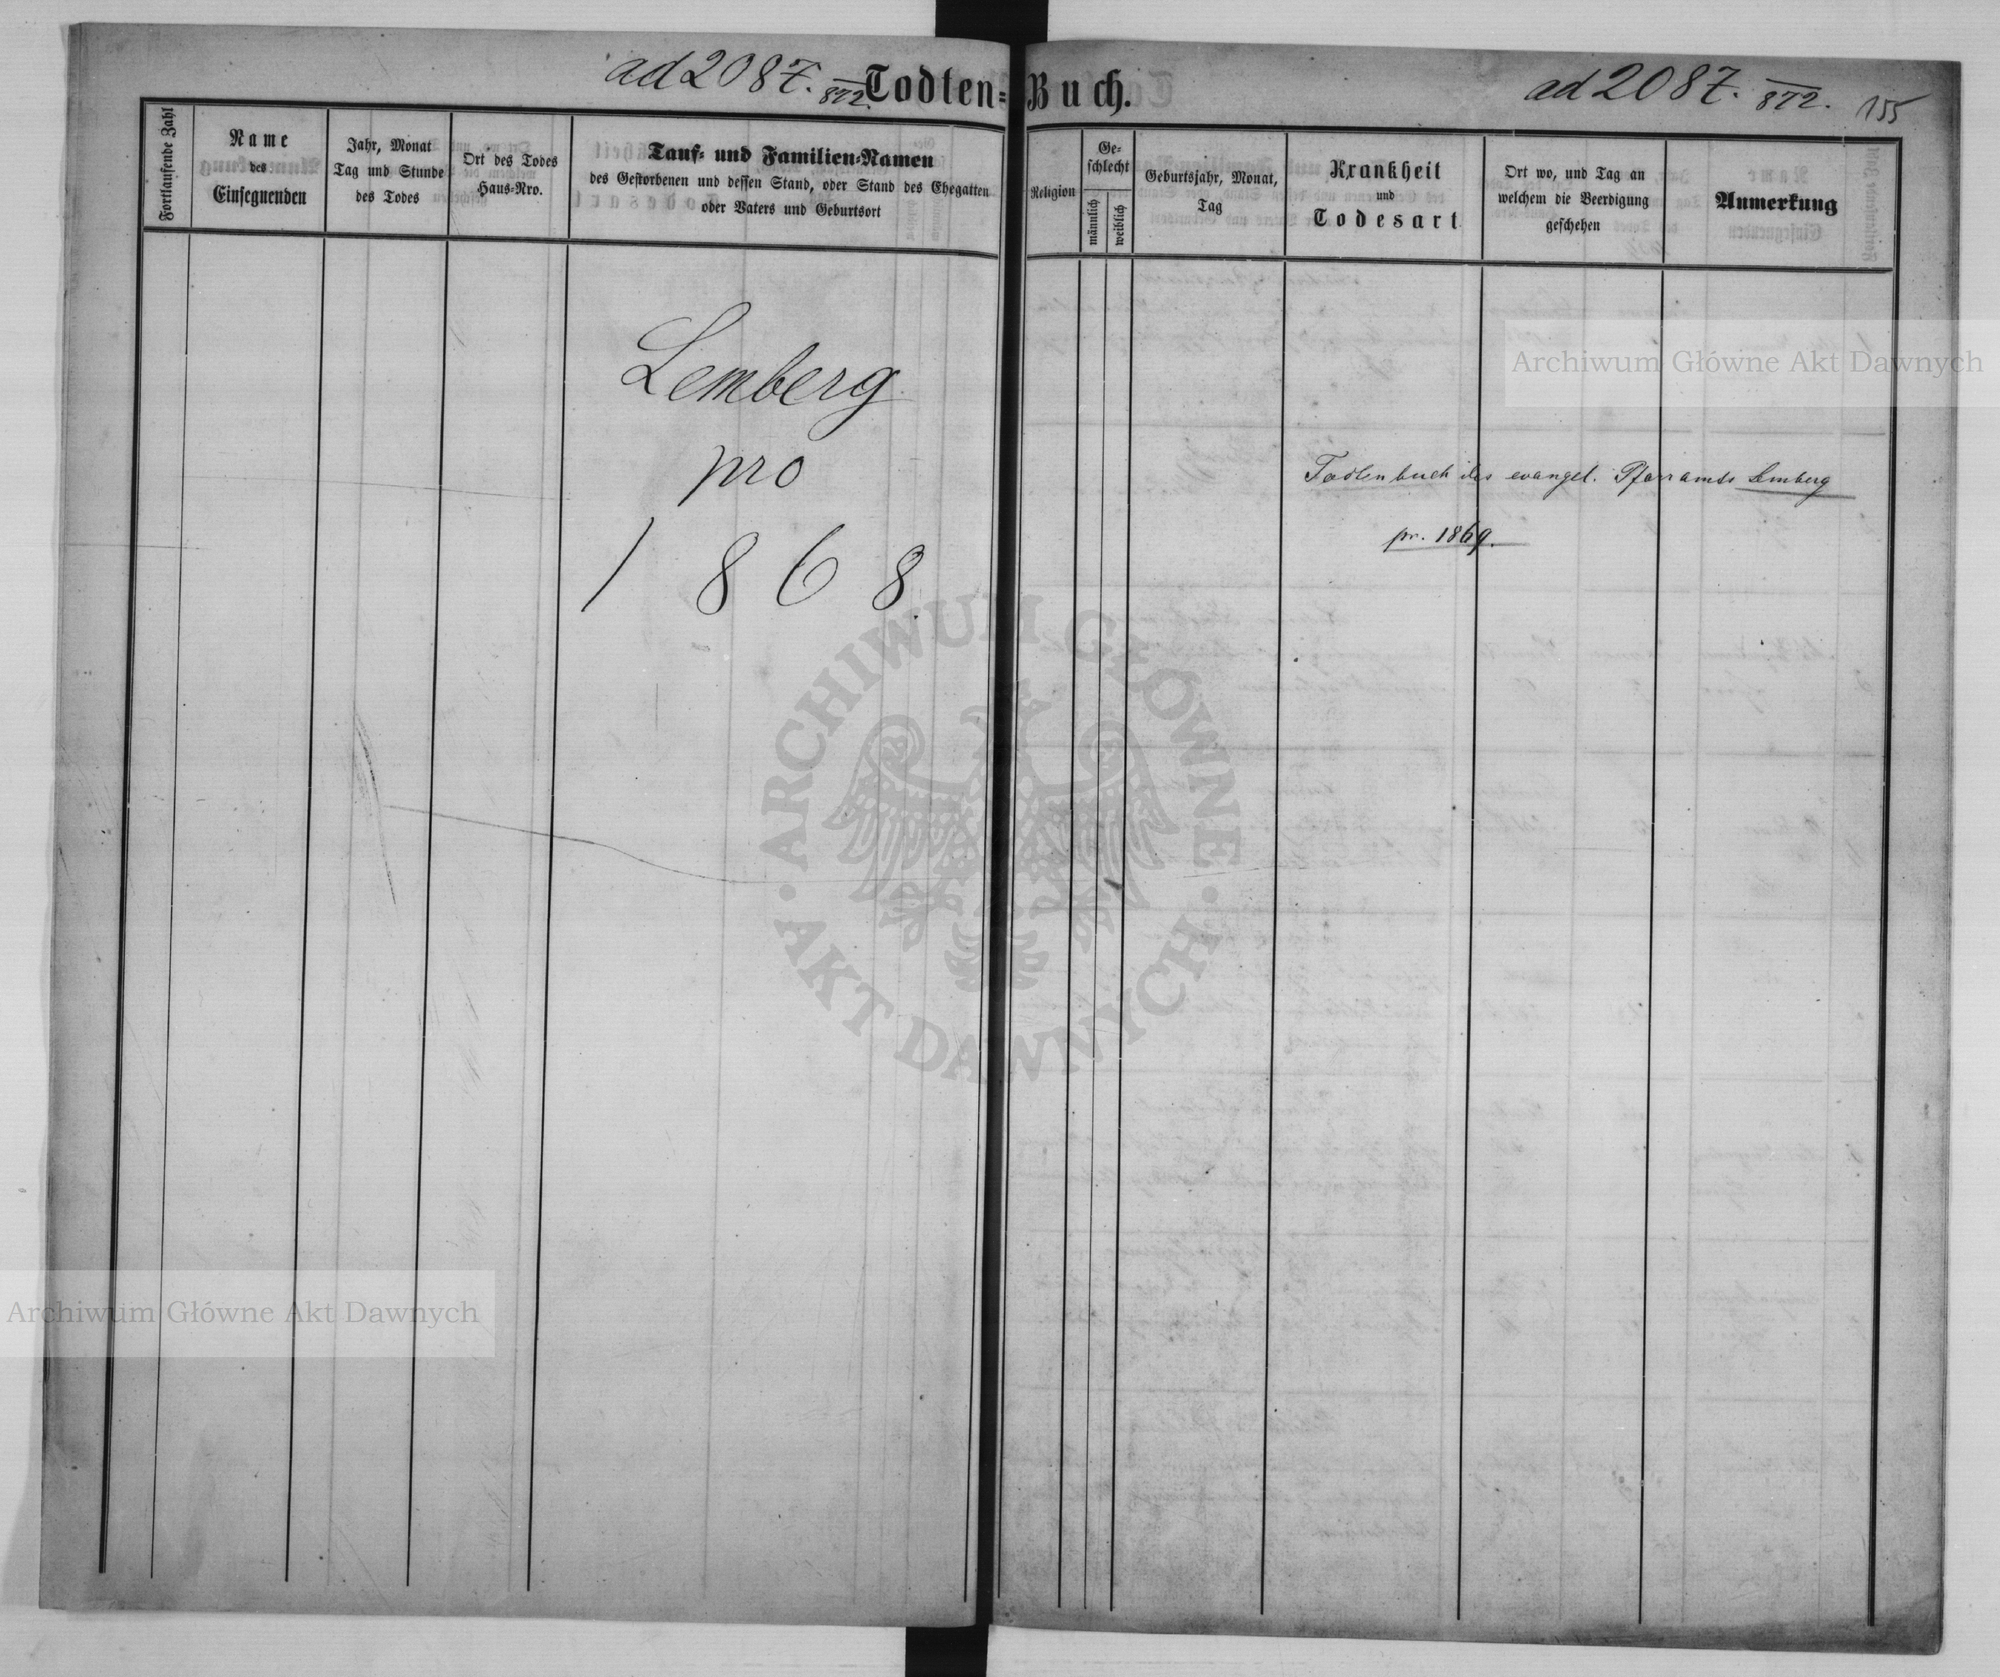 ad 2087. 872.
Todten=Buch.
ad 2087. 872.
155
Fortlaufende Zahl
Name
des
Einsegnenden
Jahr, Monat
Tag und Stunde
des Todes
Ort des Todes
Haus=Nro.
Tauf= und Familien=Namen
des Gestorbenen und dessen Stand, oder Stand des Ehegatten
oder Vaters und Geburtsort
Religion
Ge=
schlecht
männlich
weiblich
Geburtsjahr, Monat,
Tag
Krankheit
und
Todesart
Ort wo, und Tag an
welchem die Beerdigung
geschehen
Anmerkung
Lemberg
pro
1868
Todtenbuch des evangel. Pfarramts Lemberg
pr. 1869.
Archiwum Główne Akt Dawnych
ARCHIWUM GŁÓWNE
AKT DAWNYCH
Archiwum Główne Akt Dawnych